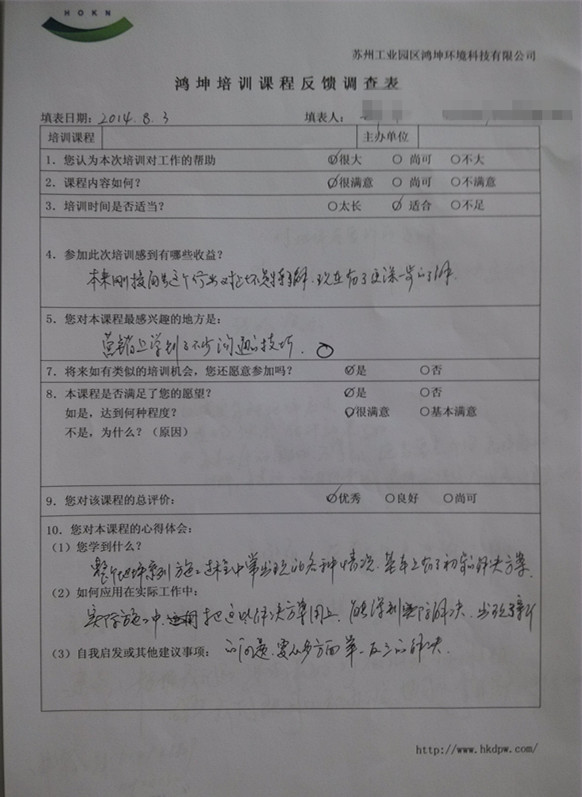 HOKN
苏州工业园区鸿坤环境科技有限公司
鸿坤培训课程反馈调查表
填表日期：2014.8.3 填表人：
培训课程 主办单位
1. 您认为本次培训对工作的帮助 ○很大 ○ 尚可 ○不大
2. 课程内容如何？ ○很满意 ○ 尚可 ○不满意
3. 培训时间是否适当？ ○太长 ○ 适合 ○不足
4. 参加此次培训感到有哪些收益？
本来刚接触这个行业对它不是特别了解，现在有了更深一步的了解。
5. 您对本课程最感兴趣的地方是：
营销上学到了不少沟通的技巧。
7. 将来如有类似的培训机会，您还愿意参加吗？ ○是 ○否
8. 本课程是否满足了您的愿望？ ○是 ○否
如是，达到何种程度？ ○很满意 ○基本满意
不是，为什么？（原因）
9. 您对该课程的总评价： ○优秀 ○良好 ○尚可
10. 您对本课程的心得体会：
（1）您学到什么？
整个地坪系列施工过程中常出现的各种情况，基本上有了初步的解决方案。
（2）如何应用在实际工作中：
实际施工中，把这些解决方案用上，能得到实际解决，出现了新
（3）自我启发或其他建议事项： 的问题，要从多方面举一反三的解决。
http://www.hkdpw.com/